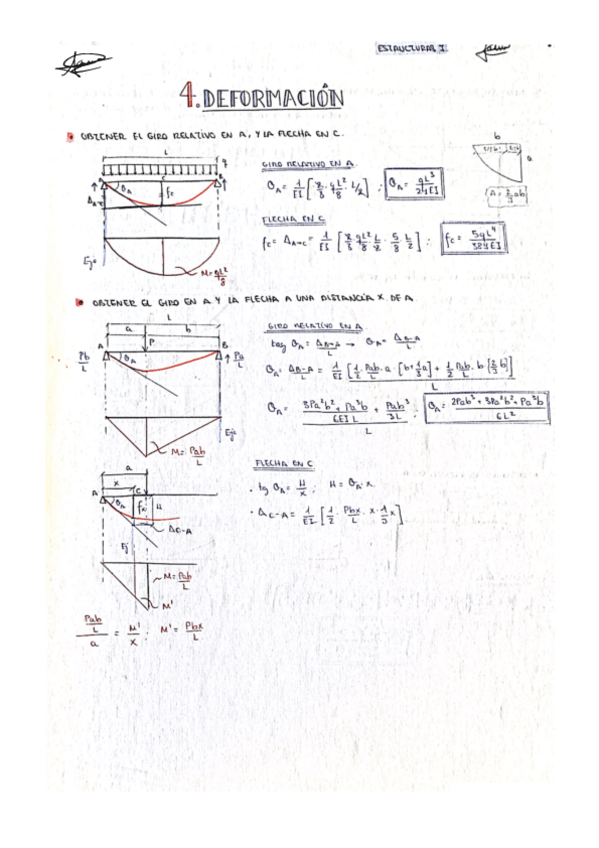 ESTRUCTURAS I
4. DEFORMACIÓN
• OBTENER EL GIRO RELATIVO EN A, Y LA FLECHA EN C.
L
q
A
C
B
θA
fc
ΔA-C
Eje
M = qL²/8
GIRO RELATIVO EN A
θA = 1/EI [2/3 · qL²/8 · L/2] ; θA = qL³/24EI
b
3/8 b
a
A = 2/3 ab
FLECHA EN C
fc = ΔA-C = 1/EI [2/3 · qL²/8 · L/2 · 5/8 · L/2] ; fc = 5qL⁴/384EI
• OBTENER EL GIRO EN A Y LA FLECHA A UNA DISTANCIA X DE A.
L
a
b
P
A
B
Pb/L
Pa/L
θA
Eje
M = Pab/L
GIRO RELATIVO EN A
tag θA = ΔB-A/L → θA = ΔB-A/L
θA = ΔB-A/L = 1/EI [1/2 · Pab/L · a · [b + 1/3 a] + 1/2 · Pab/L · b · [2/3 b]] / L
θA = (3Pa²b² + Pa³b / 6EI L + Pab³/3L) / L ; θA = 2Pab³ + 3Pa²b² + Pa³b / 6L²
a
x
A
C
θA
fx
H
ΔC-A
Ej
M = Pab/L
M'
FLECHA EN C
· tg θA = H/x ; H = θA · x.
· ΔC-A = 1/EI [1/2 · Pbx/L · x · 1/3 x]
Pab/L / a = M'/x ; M' = Pbx/L